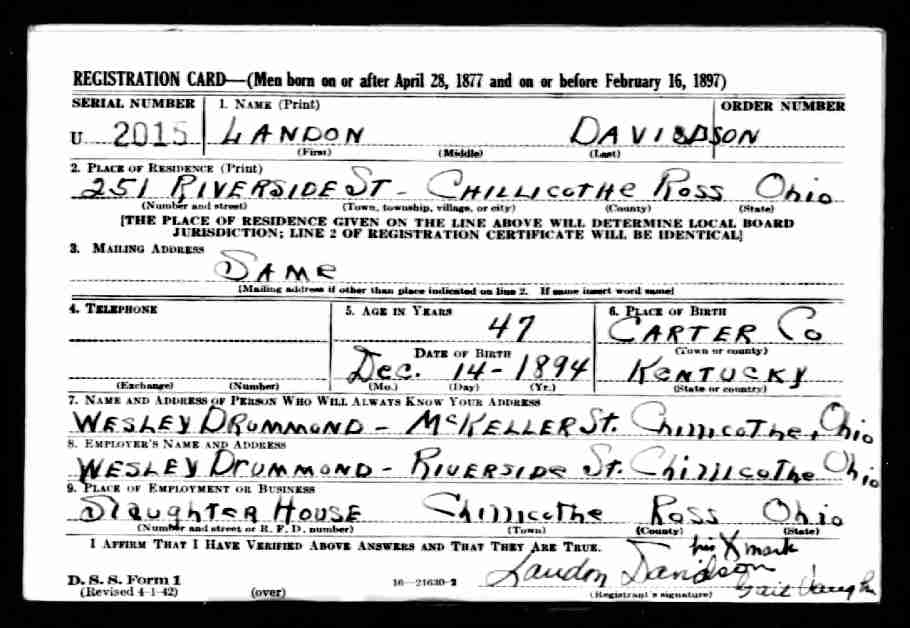 REGISTRATION CARD—(Men born on or after April 28, 1877 and on or before February 16, 1897)
SERIAL NUMBER 1. NAME (Print) ORDER NUMBER
U 2015 LANDON DAVIDSON
(First) (Middle) (Last)
2. PLACE OF RESIDENCE (Print)
251 RIVERSIDE ST - CHILLICOTHE ROSS OHIO
(Number and street) (Town, township, village, or city) (County) (State)
[THE PLACE OF RESIDENCE GIVEN ON THE LINE ABOVE WILL DETERMINE LOCAL BOARD
JURISDICTION; LINE 2 OF REGISTRATION CERTIFICATE WILL BE IDENTICAL]
3. MAILING ADDRESS
SAME
[Mailing address if other than place indicated on line 2. If same insert word same]
4. TELEPHONE 5. AGE IN YEARS 6. PLACE OF BIRTH
47 CARTER CO
DATE OF BIRTH (Town or county)
Dec. 14 - 1894 KENTUCKY
(Exchange) (Number) (Mo.) (Day) (Yr.) (State or country)
7. NAME AND ADDRESS OF PERSON WHO WILL ALWAYS KNOW YOUR ADDRESS
WESLEY DRUMMOND - McKELLER ST. Chillicothe, Ohio
8. EMPLOYER'S NAME AND ADDRESS
WESLEY DRUMMOND - RIVERSIDE St. Chillicothe Ohio
9. PLACE OF EMPLOYMENT OR BUSINESS
Slaughter House Chillicothe Ross Ohio
(Number and street or R. F. D. number) (Town) (County) (State)
I AFFIRM THAT I HAVE VERIFIED ABOVE ANSWERS AND THAT THEY ARE TRUE. his X mark
Landon Davidson
D. S. S. Form 1 16—21630-2 Gail Vaughn
(Revised 4-1-42) (over) (Registrant's signature)